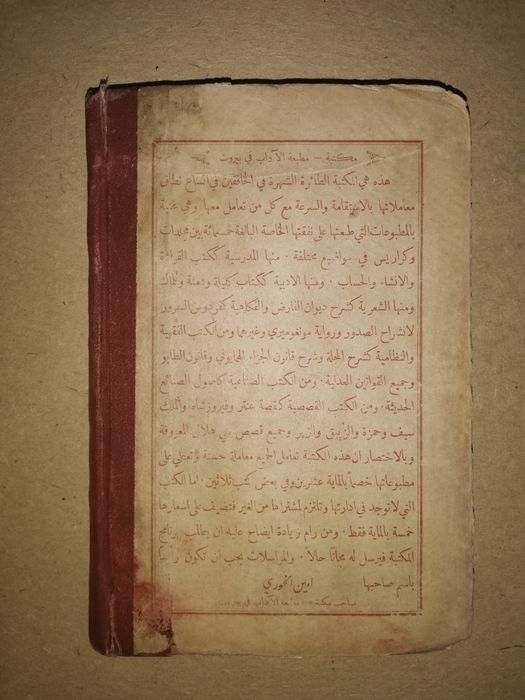 مكتبة – مطبعة الآداب في بيروت
هذه هي المكتبة الطائرة الشهرة في الخافقين في اتساع نطاق
معاملاتها بالاستقامة والسرعة مع كل من تعامل معها وهي غنية
بالمطبوعات التي طبعتها على نفقتها الخاصة البالغة خمسمائة بين مجلدات
وكراريس في مواضيع مختلفة . منها المدرسية ككتب القراءة
والانشاء والحساب . ومنها الادبية ككتاب كليلة ودمنة
ومنها الشعرية كشرح ديوان الفارض والفكاهية كفردوس السرور
لانشراح الصدور ورواية مونغوميري وغيرهما ومن الكتب الفقهية
والنظامية كشرح المجلة وشرح قانون الجزاء الهمايوني وقانون الطابو
وجميع القوانين العدلية . ومن الكتب الصناعية كاصول الصنائع
الحديثة . ومن الكتب القصصية كقصة عنتر وفيروز شاه والملك
سيف وحمزة والزيبق والزير وجميع قصص بني هلال المعروفة
وبالاختصار ان هذه المكتبة تعامل الجميع معاملة حسنة وتعطي على
مطبوعاتها خصماً بالماية عشرين وفي بعض كتب ثلاثين . اما الكتب
التي لا توجد في ادارتها وتلتزم لمشتراها من الغير فتضيف على اسعارها
خمسة بالماية فقط . ومن رام زيادة ايضاح عليه ان يطلب برنامج
المكتبة فيرسل له مجاناً حالاً . والمراسلات يجب ان تكون
باسم صاحبها امين الخوري
صاحب مكتبة الآداب في